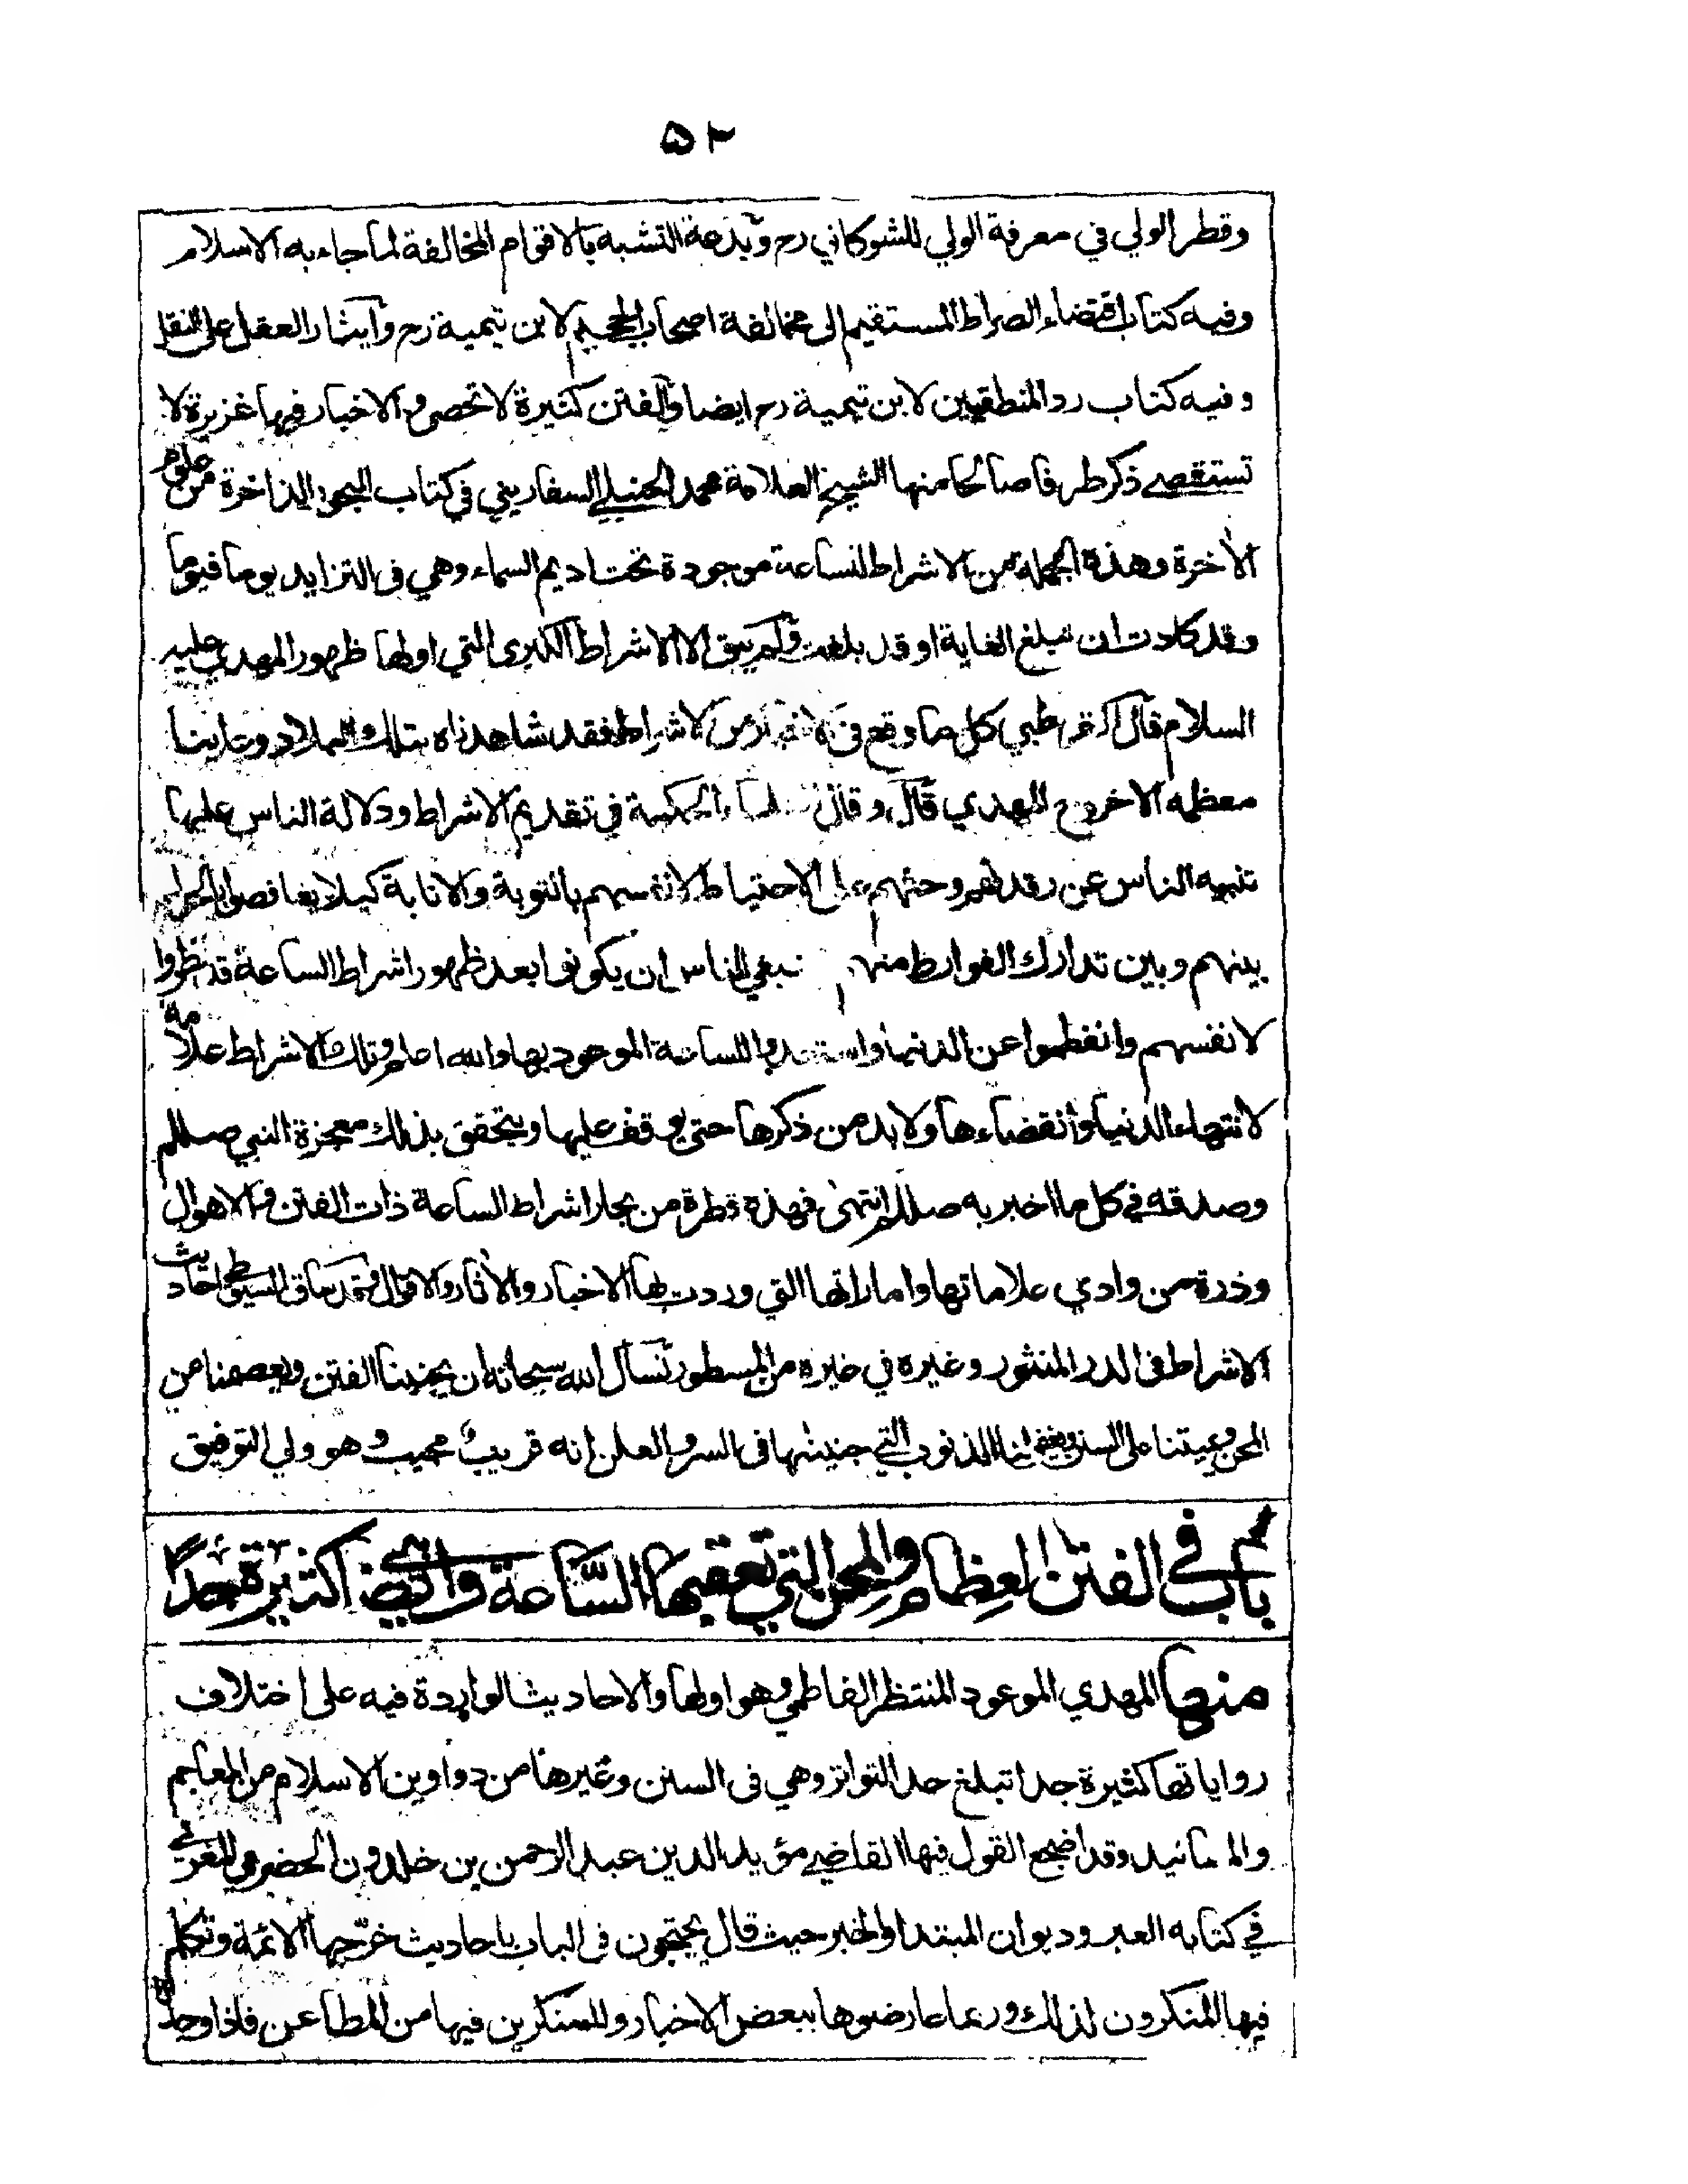 ۵۲
وقطر الولي في معرفة الولي للشوكاني رح وبدعة التشبه بالاقوام المخالفة لما جاء به الاسلام
وفيه كتاب اقتضاء الصراط المستقيم الى مخالفة اصحاب الجحيم لابن تيمية رح وايثار العقل على النقل
وفيه كتاب رد المنطقيين لابن تيمية رح ايضا والفتن كثيرة لا تحصى والاخبار فيها غزيرة لا
تستقصے ذكر طرفا صالحا منها الشيخ العلامة محمد الحنبلے السفاريني في كتاب البحور الذاخرة من علوم
الأخرة وهذه الجملة من الاشراط للساعة موجودة تحت اديم السماء وهي في التزايد يوما فيوما
وقد كادت ان تبلغ الغاية او قد بلغت ولم يبق الا الاشراط الكبرى التي اولها ظهور المهدي عليه
السلام قال القرطبي كل ما وقع في من الاشراط فقد شاهدناه بتلك البلاد وعاينا
معظمه الا خروج المهدي قال وقال العلماء الحكمة في تقديم الاشراط ودلالة الناس عليها
تنبيه الناس عن رقدتهم وحثهم على الاحتياط لانفسهم بالتوبة والانابة كيلا يغافصوا بالحول
بينهم وبين تدارك الفوارط منهم نبغي للناس ان يكونوا بعد ظهور اشراط الساعة قد نظروا
لانفسهم وانفطموا عن الدنيا واستعدوا للساعة الموعود بها والله اعلم وتلك الاشراط علامة
لانتهاء الدنيا وانقضاءها ولا بد من ذكرها حتى يوقف عليها ويتحقق بذلك معجزة النبي صللم
وصدقه في كل ما اخبر به صللم انتهى فهذه قطرة من بحار اشراط الساعة ذات الفتن والاهوال
وذرة من وادي علاماتها واماراتها التي وردت لها الاخبار والأثار والاقوال وقد ساق السيوطي احاديث
الاشراط في الدر المنثور وغيره في غيره من المسطور نسأل الله سبحانه ان يجنبنا الفتن ويعصمنا من
المحن ويميتنا على السنن ويغفر لنا الذنوب التي جنيناها في السر والعلن انه قريب مجيب وهو ولي التوفيق
باب في الفتن العظام والمحن التي تعقبها الساعة وهي ايضا كثيرة جدا
منها المهدي الموعود المنتظر الفاطمي وهو اولها والاحاديث الواردة فيه على اختلاف
رواياتها كثيرة جدا تبلغ حد التواتر وهي في السنن وغيرها من دواوين الاسلام من المعاجم
والمسانيد وقد اضجع القول فيها القاضے مؤيد الدين عبد الرحمن بن خلدون الحضرمي المغربے
في كتابه العبر وديوان المبتدا والخبر حيث قال يحتجون في الباب باحاديث خرّجها الائمة وتكلم
فيها المنكرون لذلك وربما عارضوها ببعض الاخبار وللمنكرين فيها من المطاعن فاذا وجدنا